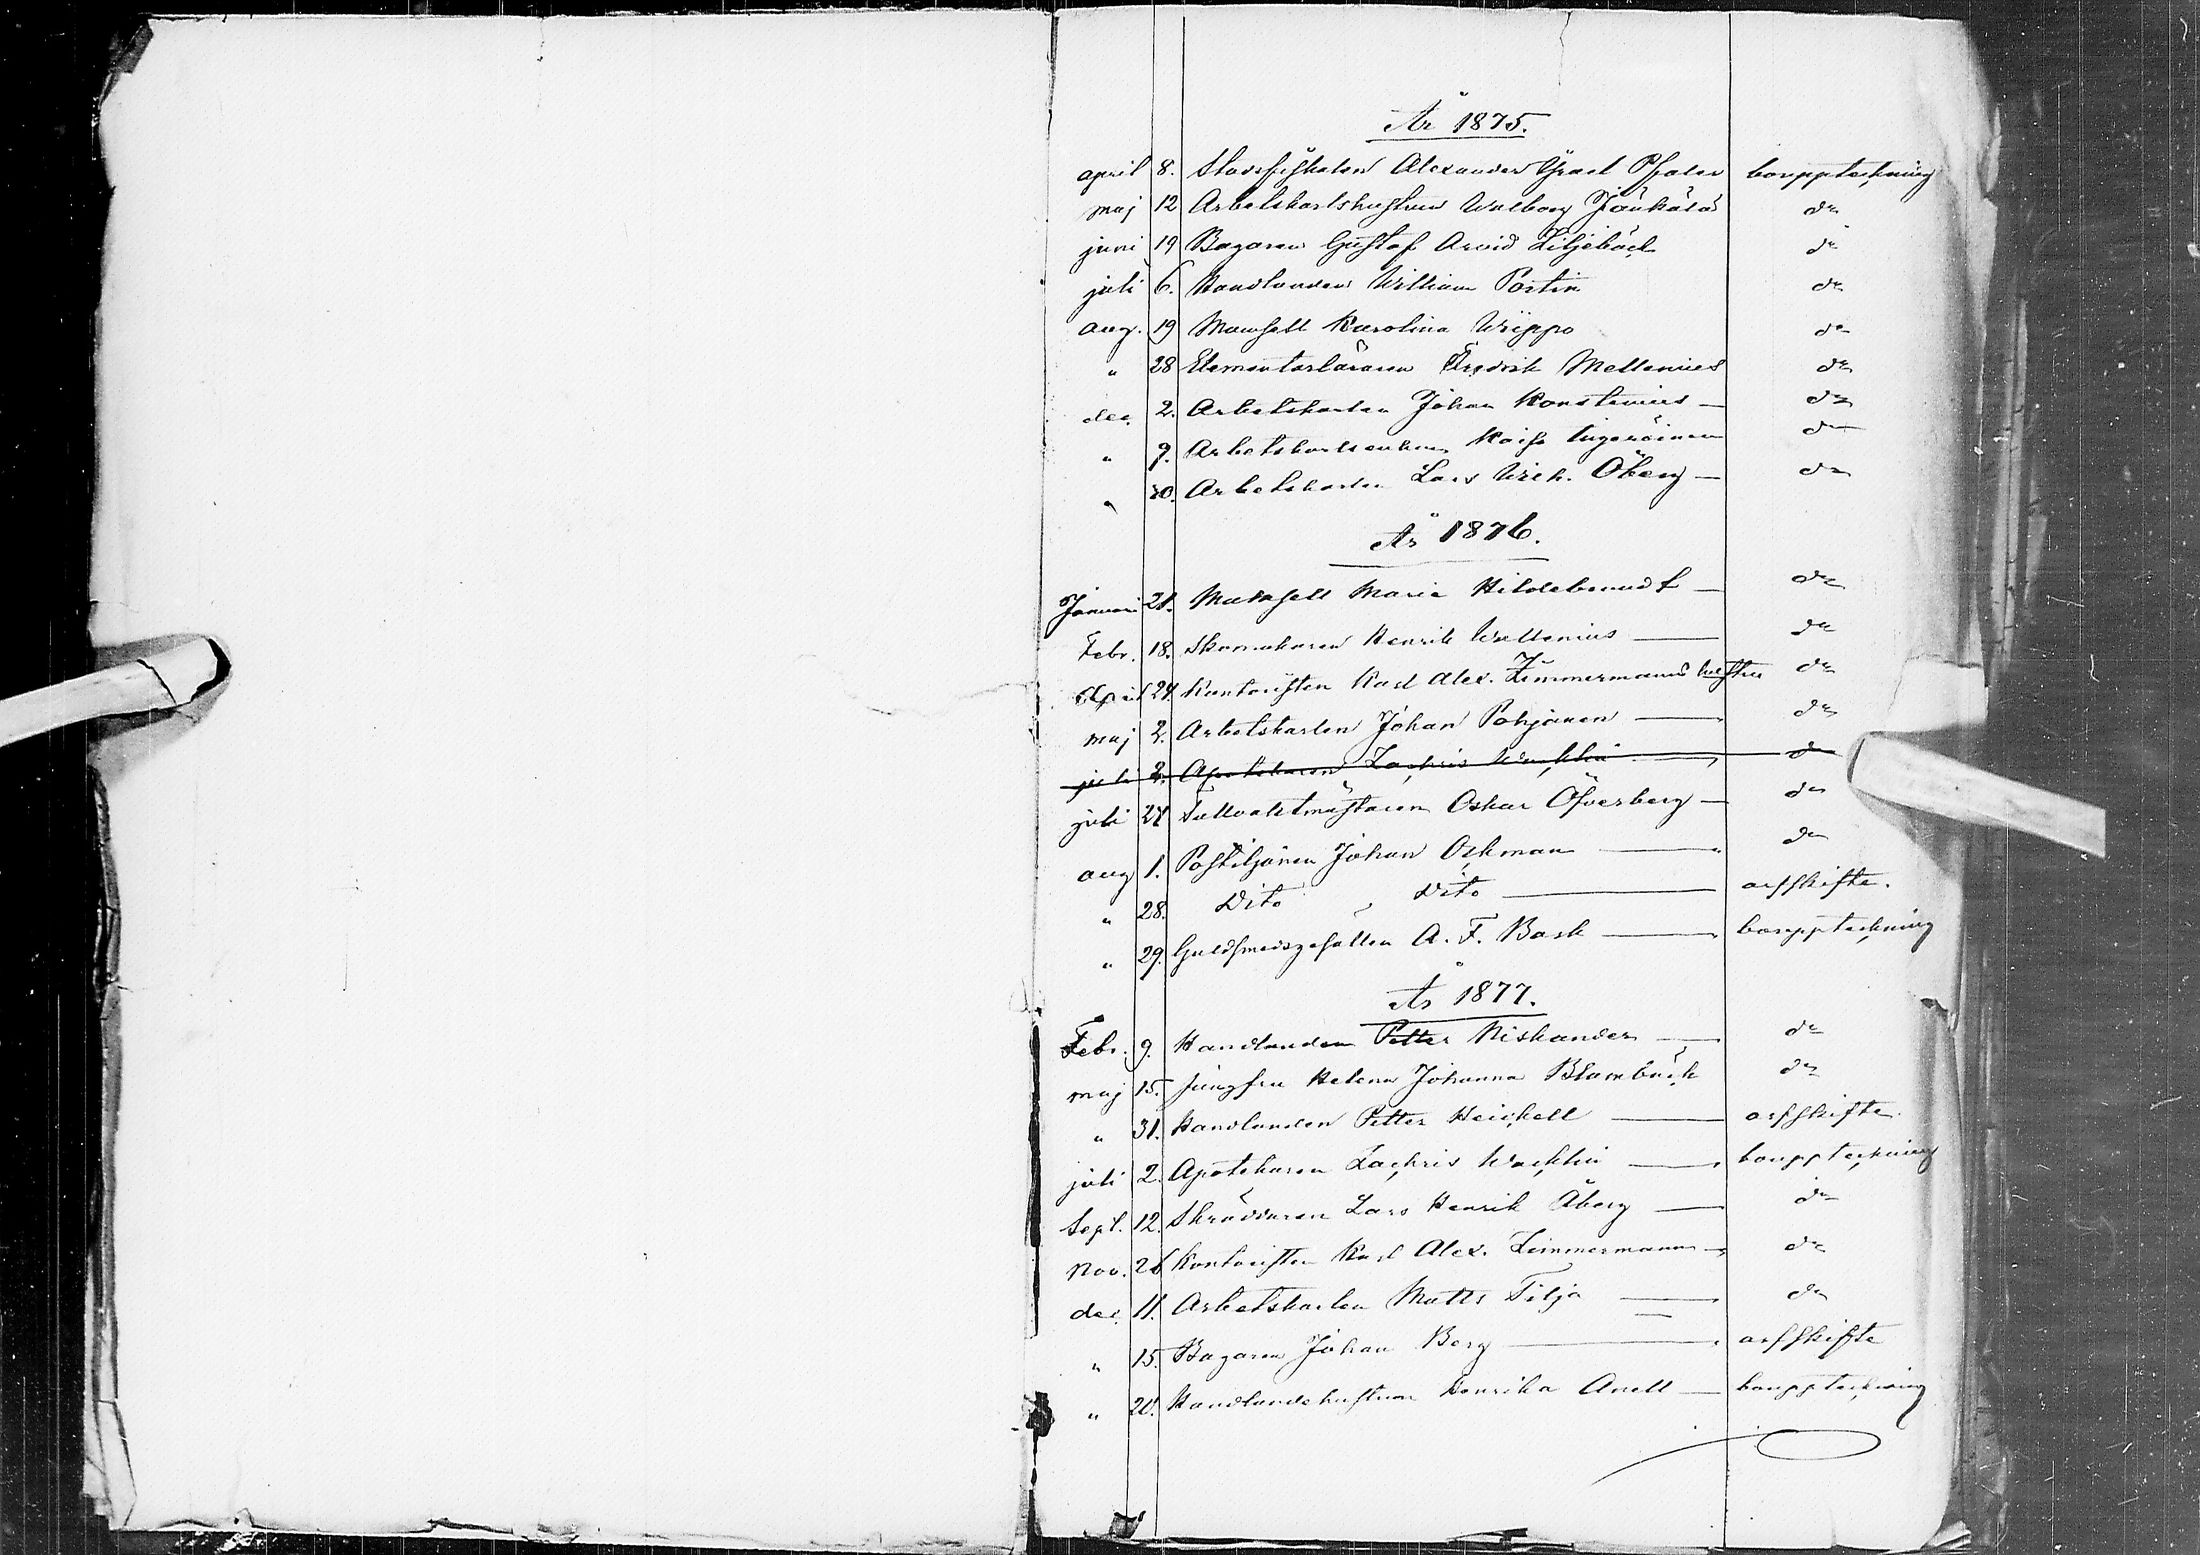 År 1875.
april 8. Stadsfiskalen Alexander Israel Pfaler bouppteckning
maj 12 Arbetskarlshustrun Walborg Jänkälä do
juni 19 Bagaren Gustaf Arvid Liljebäck do
juli 6. Handlanden William Portin do
aug. 19 Mamsell Karolina Wippo do
" 28 Elementarläraren Fredrik Mellenius do
dec. 2. Arbetskarlen Johan Konstenius — do
" 9. Arbetskarlsenkan Kaisa Ingeröinen do
" 20. Arbetskarlen Lars Wilh. Öberg — do
År 1876.
Januari 21. Mamsell Maria Hildebrandt — do
Febr. 18. Skomakaren Henrik Wallenius — do
April 24. Kontoristen Karl Alex. Zimmermanns hustru do
maj 2. Arbetskarlen Johan Pohjanen — do
juli 2. Apotekaren Zachris Wacklin — do
juli 24 Tullvaktmästaren Oskar Öfverberg — do
aug 1. Postiljonen Johan Öhman — do
" 28. Dito Dito — arfskifte.
" 29. Guldsmedsgesällen A. F. Bask — bouppteckning
År 1877.
Febr. 9. Handlanden Petter Niskander — do
maj 15. Jungfru Helena Johanna Blombäck do
" 31. Handlanden Petter Heickell — arfskifte.
juli 2. Apotekaren Zachris Wacklin — bouppteckning
Sept. 12. Skräddaren Lars Henrik Åberg — do
Nov. 26 Kontoristen Karl Alex. Zimmermann — do
dec. 11. Arbetskarlen Matts Tilja — do
" 15. Bagaren Johan Berg — arfskifte
" 20. Handlandshustrun Henrika Anell — bouppteckning